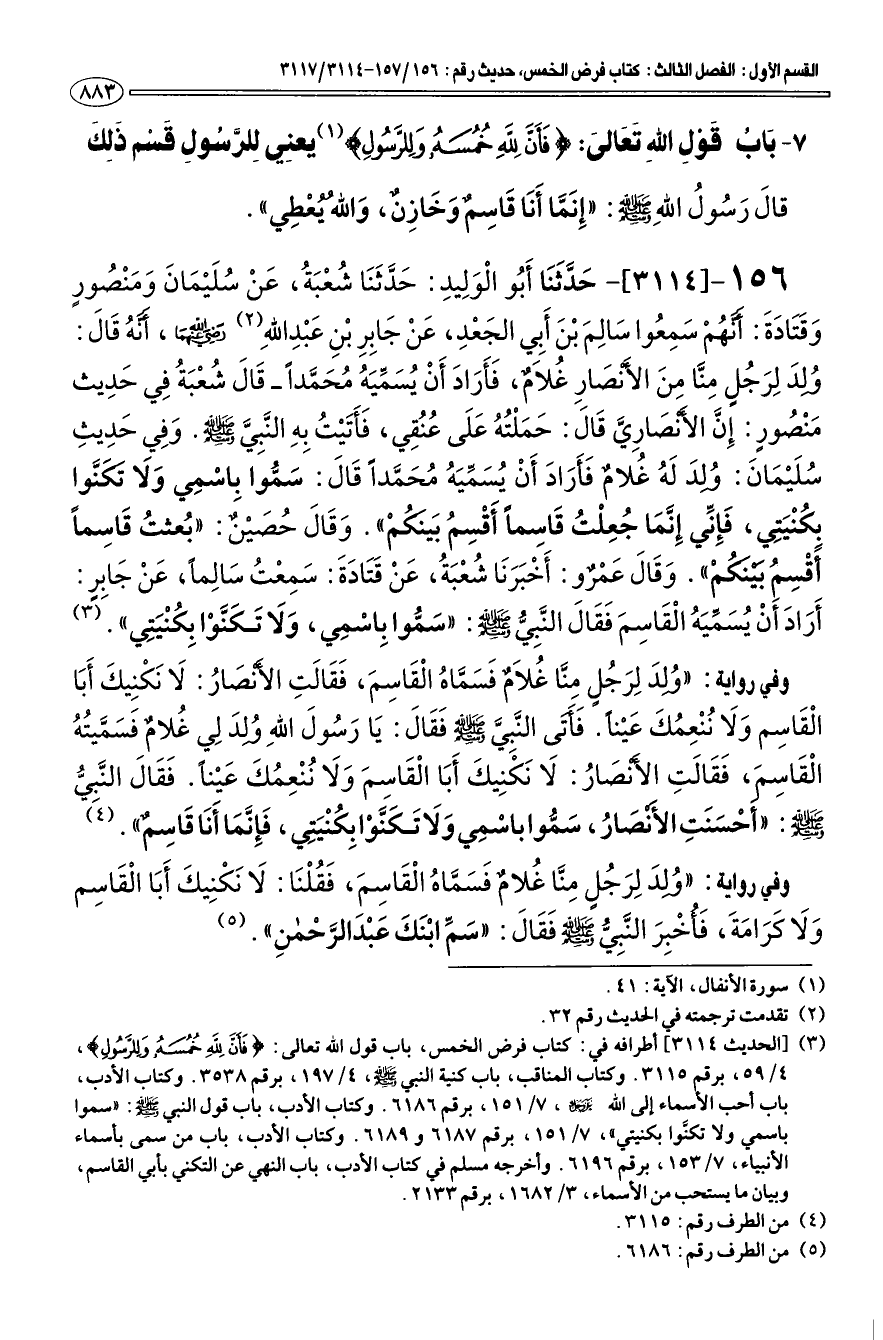 القسم الأول: الفصل الثالث: كتاب فرض الخمس، حديث رقم: ١٥٦/ ١٥٧-٣١١٤/ ٣١١٧
٨٨٣
٧- بَابُ قَوْلِ اللهِ تَعَالَى: ﴿ فَأَنَّ لِلَّهِ خُمُسَهُ وَلِلرَّسُولِ﴾(١) يعنِي لِلرَّسُولِ قَسْم ذَلِكَ
قالَ رَسُولُ اللهِ ﷺ: «إِنَّمَا أَنَا قَاسِمٌ وَخَازِنٌ، وَاللهُ يُعْطِي».
١٥٦-[٣١١٤]- حَدَّثَنَا أَبُو الْوَلِيدِ: حَدَّثَنَا شُعْبَةُ، عَنْ سُلَيْمَانَ وَمَنْصُورٍ
وَقَتَادَةَ: أَنَّهُمْ سَمِعُوا سَالِمَ بْنَ أَبِي الجَعْدِ، عَنْ جَابِرِ بْنِ عَبْدِاللهِ(٢) رَضِيَ اللهُ عَنْهُمَا، أَنَّهُ قَالَ:
وُلِدَ لِرَجُلٍ مِنَّا مِنَ الأَنْصَارِ غُلَامٌ، فَأَرَادَ أَنْ يُسَمِّيَهُ مُحَمَّداً ـ قَالَ شُعْبَةُ فِي حَدِيث
مَنْصُورٍ: إِنَّ الأَنْصَارِيَّ قَالَ: حَمَلْتُهُ عَلَى عُنُقِي، فَأَتَيْتُ بِهِ النَّبِيَّ ﷺ. وَفِي حَدِيثِ
سُلَيْمَانَ: وُلِدَ لَهُ غُلَامٌ فَأَرَادَ أَنْ يُسَمِّيَهُ مُحَمَّداً قَالَ: سَمُّوا بِاسْمِي وَلَا تَكَنَّوا
بِكُنْيَتِي، فَإِنِّي إِنَّمَا جُعِلْتُ قَاسِماً أَقْسِمُ بَيَنَكُمْ». وَقَالَ حُصَيْنٌ: «بُعثتُ قَاسِماً
أَقْسِمُ بَيْنَكُمْ». وَقَالَ عَمْرٌو: أَخْبَرَنَا شُعْبَةُ، عَنْ قَتَادَةَ: سَمِعْتُ سَالِماً، عَنْ جَابِرٍ:
أَرَادَ أَنْ يُسَمِّيَهُ الْقَاسِمَ فَقَالَ النَّبِيُّ ﷺ: «سَمُّوا بِاسْمِي، وَلَا تَكَنَّوْا بِكُنْيَتِي».(٣)
وفي رواية: «وُلِدَ لِرَجُلٍ مِنَّا غُلاَمٌ فَسَمَّاهُ الْقَاسِمَ، فَقَالَتِ الأَنْصَارُ: لَا نَكْنِيكَ أَبَا
الْقَاسِم وَلَا نُنْعِمُكَ عَيْناً. فَأَتَى النَّبِيَّ ﷺ فَقَالَ: يَا رَسُولَ اللهِ وُلِدَ لِي غُلَامٌ فَسَمَّيتُهُ
الْقَاسِمَ، فَقَالَتِ الأَنْصَارُ: لَا نَكْنِيكَ أَبَا الْقَاسِمَ وَلَا نُنْعِمُكَ عَيْناً. فَقَالَ النَّبِيُّ
ﷺ: «أَحْسَنَتِ الأَنْصَارُ، سَمُّوا باسْمِي وَلَا تَكَنَّوْا بِكُنْيَتِي، فَإِنَّمَا أَنَا قَاسِمٌ».(٤)
وفي رواية: «وُلِدَ لِرَجُلٍ مِنَّا غُلَامٌ فَسَمَّاهُ الْقَاسِمَ، فَقُلْنَا: لَا نَكْنِيكَ أَبَا الْقَاسِم
وَلَا كَرَامَةَ، فَأُخْبِرَ النَّبِيُّ ﷺ فَقَالَ: «سَمِّ ابْنَكَ عَبْدَالرَّحْمٰنِ».(٥)
(١) سورة الأنفال، الآية: ٤١.
(٢) تقدمت ترجمته في الحديث رقم ٣٢.
(٣) [الحديث ٣١١٤] أطرافه في: كتاب فرض الخمس، باب قول الله تعالى: ﴿ فَأَنَّ لِلَّهِ خُمُسَهُ وَلِلرَّسُولِ﴾،
٤/ ٥٩، برقم ٣١١٥. وكتاب المناقب، باب كنية النبي ﷺ، ٤/ ١٩٧، برقم ٣٥٣٨. وكتاب الأدب،
باب أحب الأسماء إلى الله ، ٧/ ١٥١، برقم ٦١٨٦. وكتاب الأدب، باب قول النبي ﷺ: «سموا
باسمي ولا تكنَّوا بكنيتي»، ٧/ ١٥١، برقم ٦١٨٧ و ٦١٨٩. وكتاب الأدب، باب من سمى بأسماء
الأنبياء، ٧/ ١٥٣، برقم ٦١٩٦. وأخرجه مسلم في كتاب الأدب، باب النهي عن التكني بأبي القاسم،
وبيان ما يستحب من الأسماء، ٣/ ١٦٨٢، برقم ٢١٣٣.
(٤) من الطرف رقم: ٣١١٥.
(٥) من الطرف رقم: ٦١٨٦.